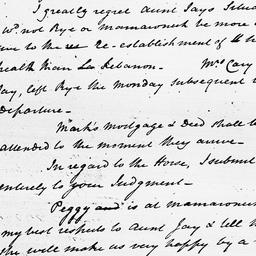 I greatly regret Aunt Jays
Wd not Rye or Mamaroneck be more
to the re-establishment of
health than Lebanon - Mrs Cary
Jay, left Rye the Monday subsequent
departure -
Mark's Mortgage & Deed shall be
attended to the moment they arrive -
In regard to the Horse, I submit
entirely to your Judgment -
Peggy and is at Mamaroneck
my best respects to Aunt Jay & tell h
she will make us very happy by a